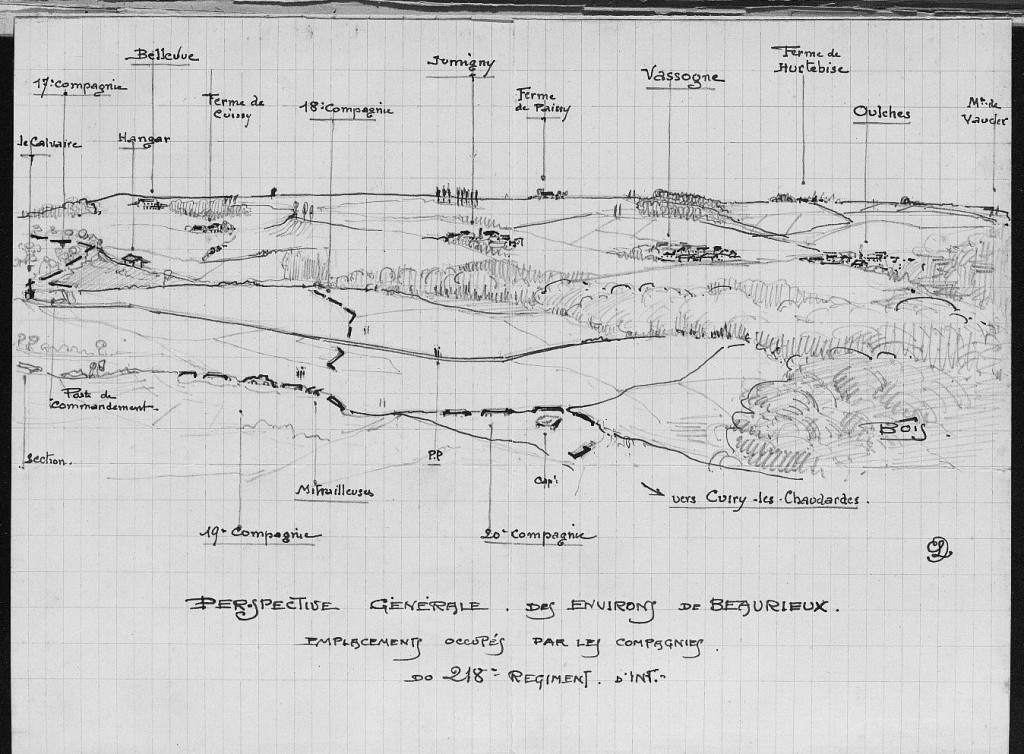 Bellevue
Jumigny
Ferme de
Hurtebise
17e Compagnie
Ferme de
Cuissy
18e Compagnie
Ferme
de Paissy
Vassogne
Oulches
Min de
Vaucler
le Calvaire
Hangar
Poste de
Commandement
BOIS
section.
P.P
Mitrailleuses
Capt
vers Cuiry-les-Chaudardes.
19e Compagnie
20e Compagnie
PERSPECTIVE GÉNÉRALE. DES ENVIRONS DE BEAURIEUX.
EMPLACEMENTS OCCUPÉS PAR LES COMPAGNIES.
DO 218e REGIMENT. D'INT.